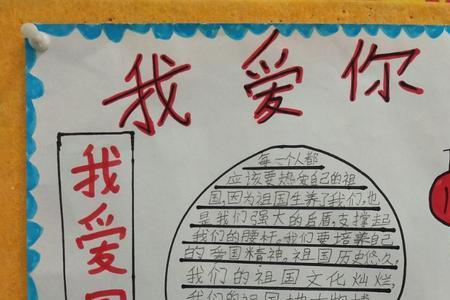 我爱你
我爱
每一个人都
应该要热爱自己的祖
国,因为祖国生养了我们,也
是我们强大的后盾,支撑起
我们的腰杆。我们要培养自己
的爱国精神。祖国历史悠久,
我们的祖国文化灿烂,